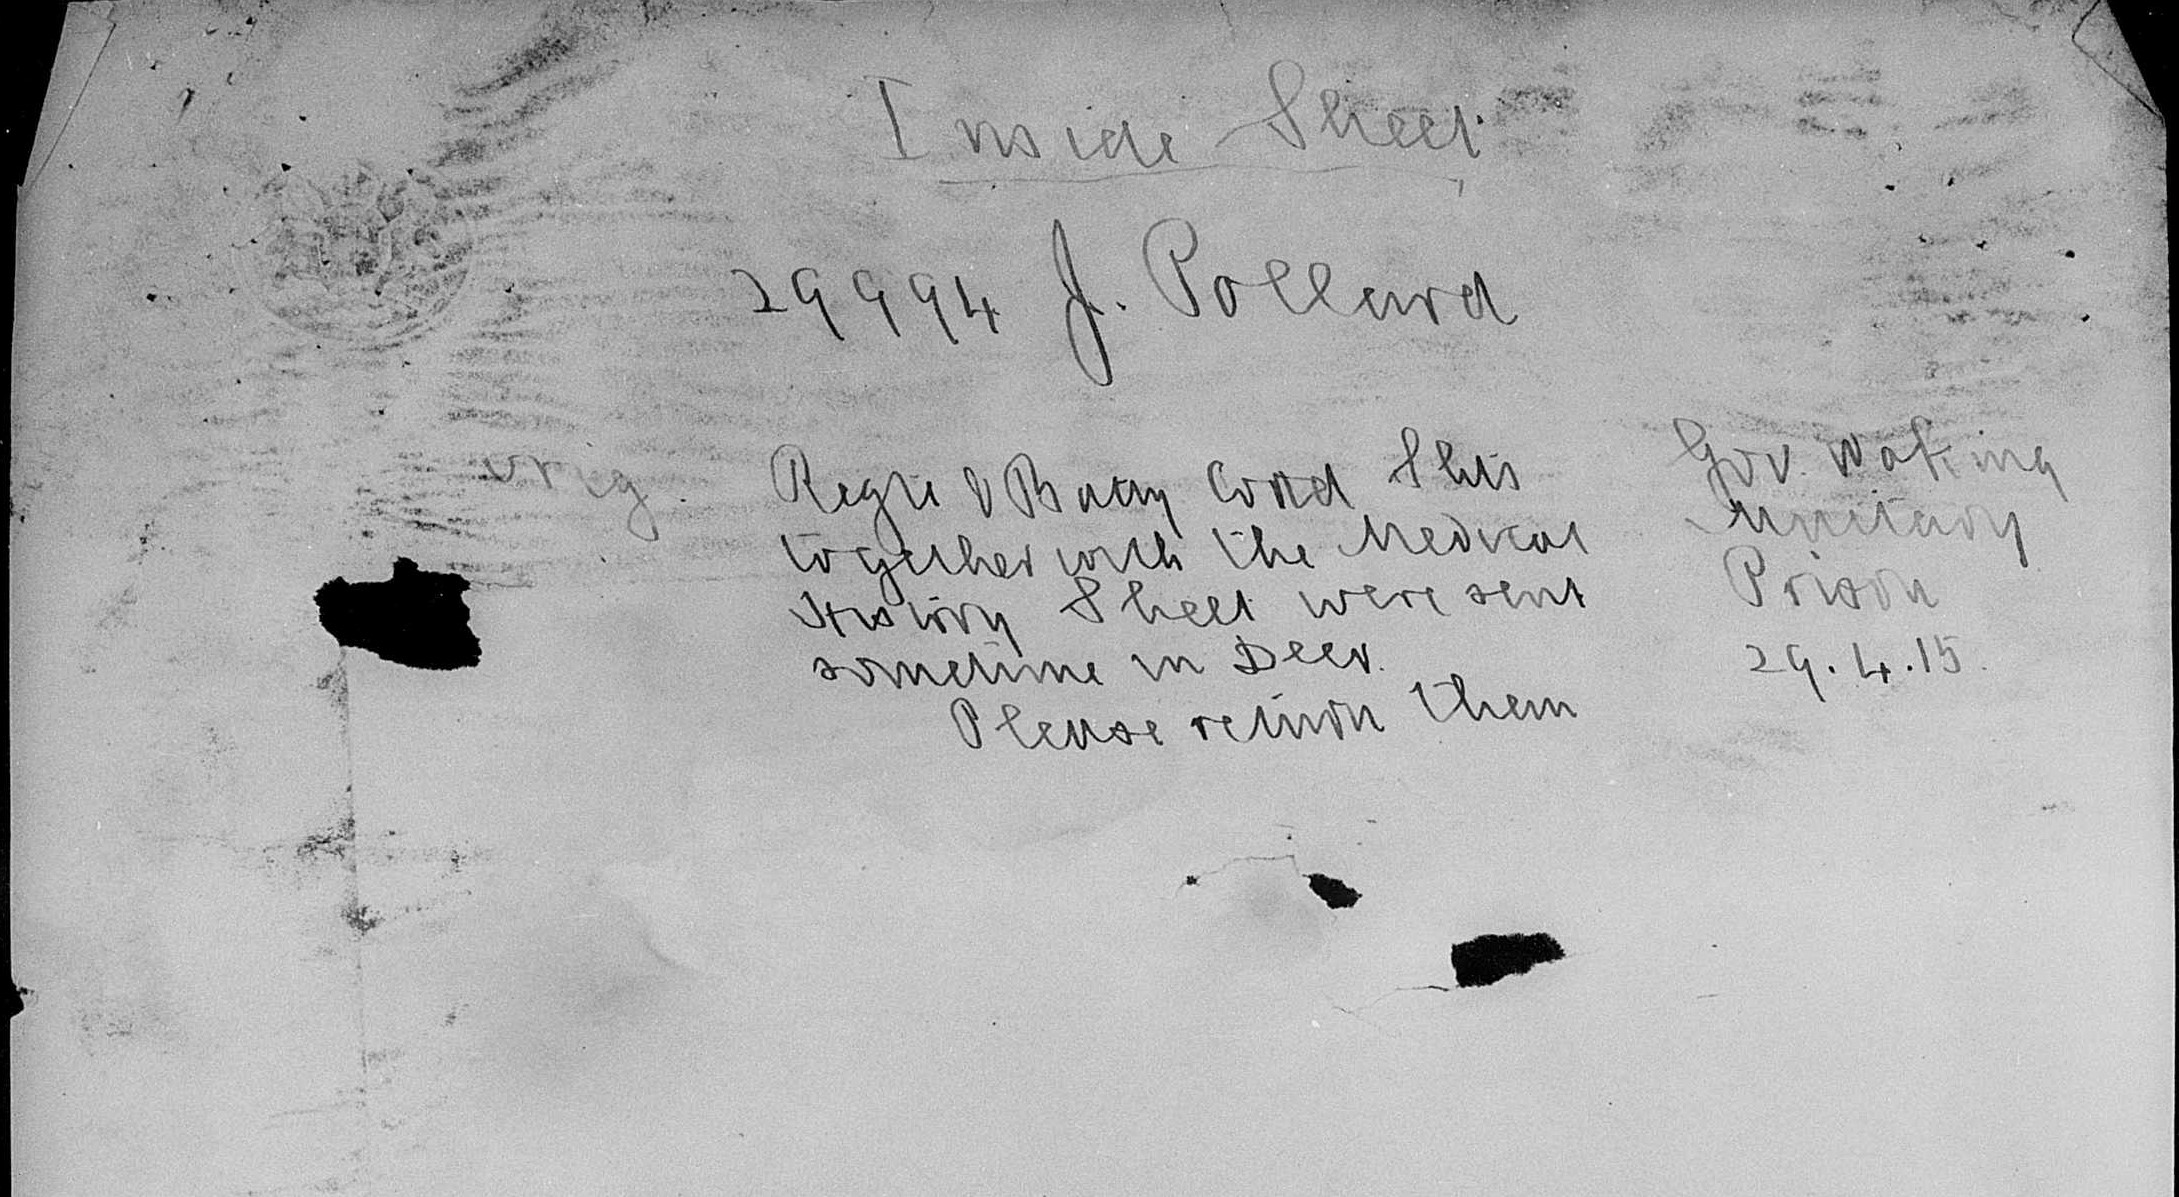 Inside Sheet
29994 J. Pollard
Orig. Regtl & Batty Cond Shts
together with the Medical
History Sheet were sent
sometime in Decr.
Please return them
Gov. Woking
Military
Prison
29.4.15.